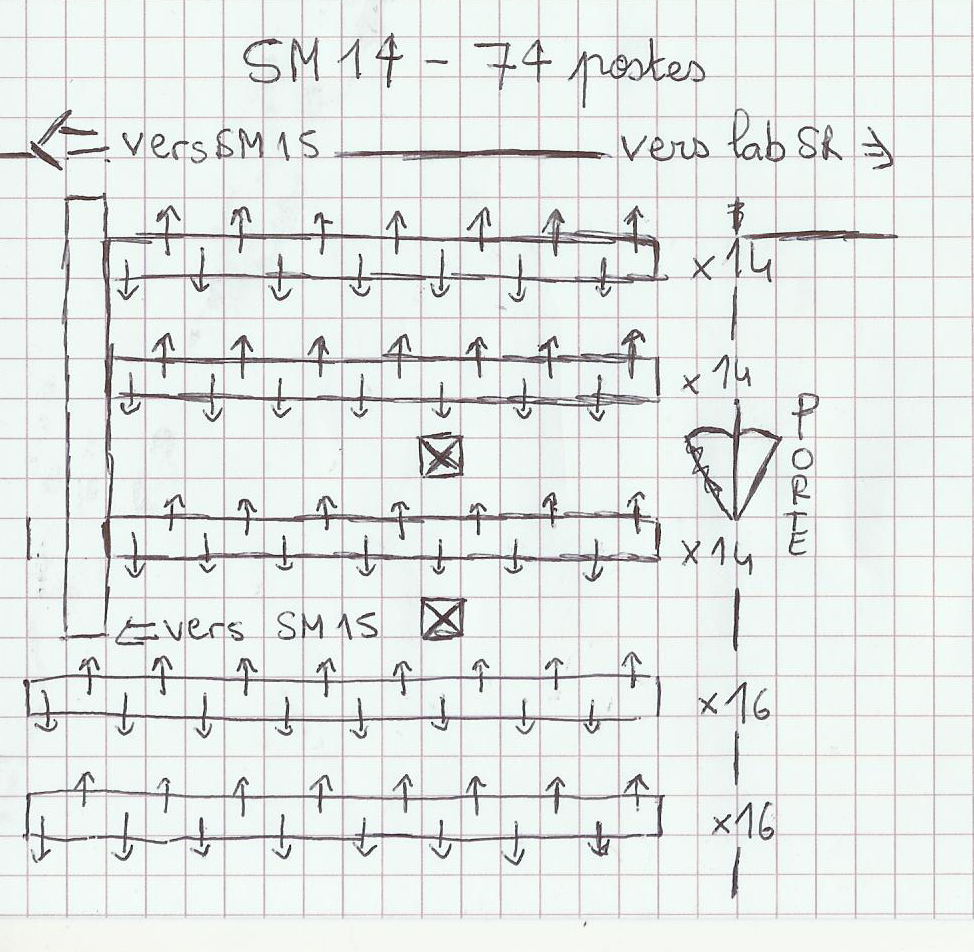 SM 14 - 74 postes
⇐ vers SM 15 vers lab SR ⇒
x 14
x 14
PORTE
x 14
⇐ vers SM 15
x 16
x 16